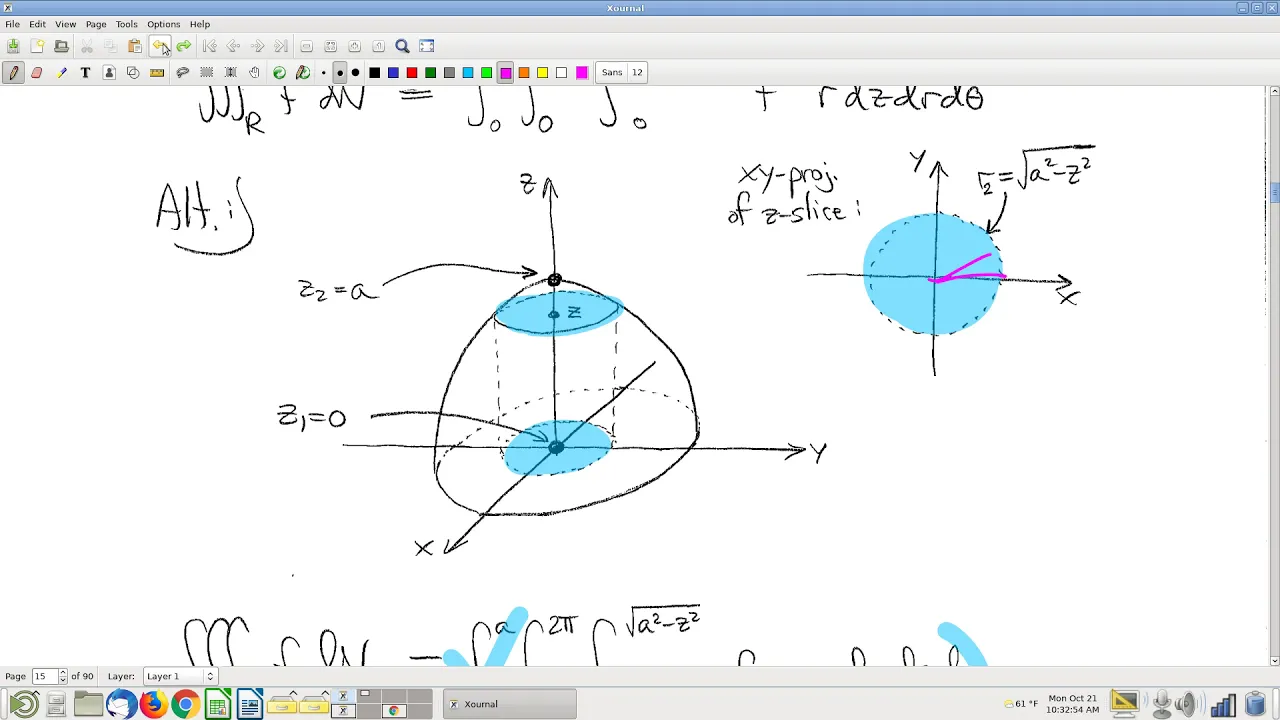 Xournal
File Edit View Page Tools Options Help
Sans 12
∭_R f dV = ∫_0 ∫_0 ∫_0 f r dz dr dθ
Alt.:
z
z₂=a
z
z₁=0
y
x
xy-proj.
of z-slice:
y
r₂=√(a²-z²)
x
∭ f dV = ∫^a ∫^2π ∫^√(a²-z²)
Page 15 of 90 Layer: Layer 1
Xournal
61 °F
Mon Oct 21
10:32:54 AM